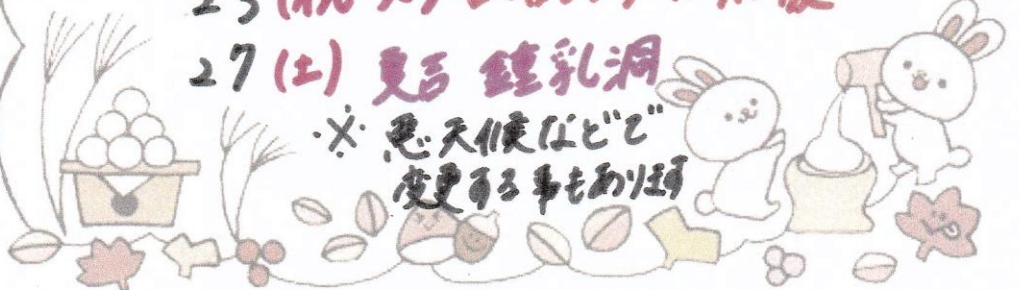 23 (
27 (土) 夏吉 鍾乳洞
※ 悪天候などで
変更する事もあります